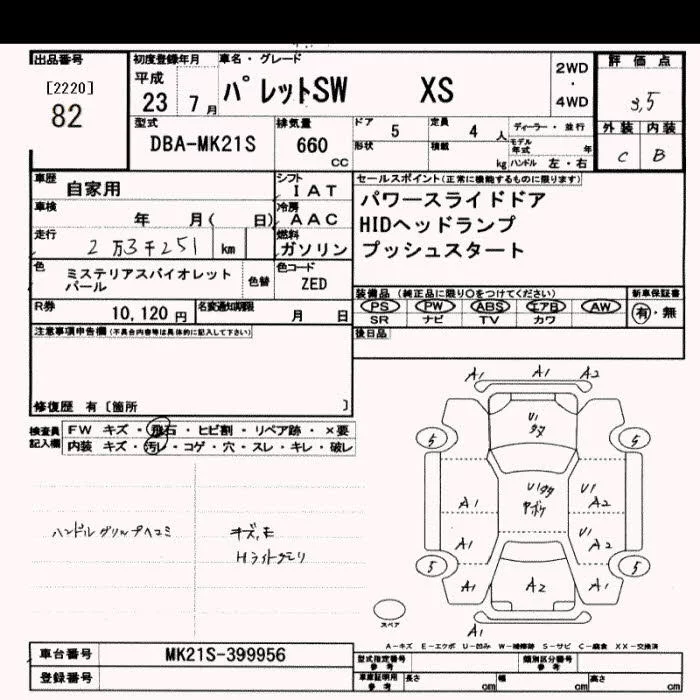 出品番号 初度登録年月 車名・グレード 評価点
[2220] 平成 パレットSW XS 2WD
82 23 7月 ・ 4WD 3.5
型式 排気量 ドア 5 定員 4人 ディーラー・並行 外装 内装
DBA-MK21S 660 CC 形状 積載 kg モデル年式 年 ハンドル 左・右 C B
車歴 自家用 シフト IAT セールスポイント(正常に機能するものに限ります)
車検 年 月( 日) 冷房 AAC パワースライドドア
走行 2万3千251 km 燃料 ガソリン HIDヘッドランプ
プッシュスタート
色 ミステリアスバイオレットパール 色替 色コード ZED
装備品(純正品に限り○をつけてください) 新車保証書
R券 10,120円 名変通知期限 月 日 PS PW ABS エアB AW 有・無
SR ナビ TV カワ
注意事項申告欄(不具合内容等は具体的に記入して下さい) 後日品
修復歴 有〔箇所 〕
検査員記入欄 FW キズ・飛石・ヒビ割・リペア跡・×要
内装 キズ・汚レ・コゲ・穴・スレ・キレ・破レ
ハンドルグリップヘコミ
Hライトクモリ
A1 A1 A2
U1
5 5
U1
A1 A2
U1
A1 A2
5 5
A1 A2 A1
A1
スペア
A-キズ E-エクボ U-凹み W-補修跡 S-サビ C-腐食 XX-交換済
車台番号 MK21S-399956 型式指定番号 参考 類別区分番号 参考
登録番号 車庫証明用 参考 長さ cm 幅 cm 高さ cm